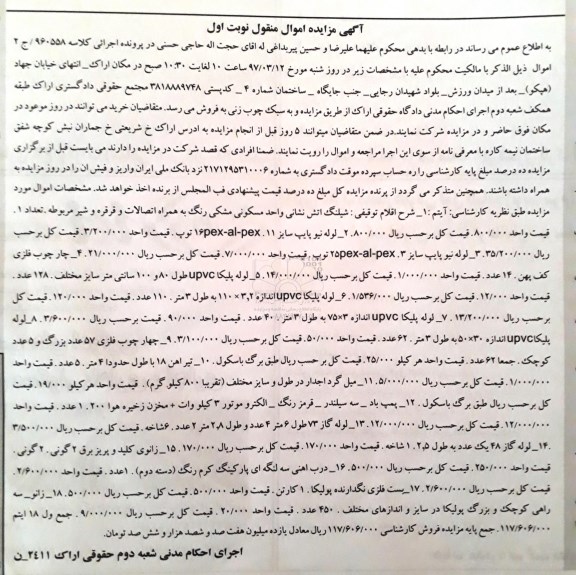 آگهی مزایده اموال منقول نوبت اول
به اطلاع عموم می رساند در رابطه با بدهی محکوم علیهما علیرضا و حسین پیربداغی له اقای حجت اله حاجی حسنی در پرونده اجرائی کلاسه ۹۶۰۵۵۸ / ج ۲
اموال ذیل الذکر با مالکیت محکوم علیه با مشخصات زیر در روز شنبه مورخ ۹۷/۰۳/۱۲ ساعت ۱۰ لغایت ۱۰:۳۰ صبح در مکان اراک_ انتهای خیابان جهاد
(هپکو)_ بعد از میدان ورزش_ بلواد شهیدان رجایی_ جنب جایگاه _ ساختمان شماره ۴ _ کدپستی ۳۸۱۸۸۸۹۷۴۸ مجتمع حقوقی دادگستری اراک طبقه
همکف شعبه دوم اجرای احکام مدنی دادگاه حقوقی اراک از طریق مزایده و به سبک چوب زنی به فروش می رسد. متقاضیان خرید می توانند در روز موعود در
مکان فوق حاضر و در مزایده شرکت نمایند.در ضمن متقاضیان میتوانند ۵ روز قبل از انجام مزایده به ادرس اراک خ شریعتی خ جماران نبش کوچه شفق
ساختمان نیمه کاره با معرفی نامه از سوی این اجرا مراجعه و اموال را رویت نمایند. ضمنا افرادی که قصد شرکت در مزایده را دارند می بایست قبل از برگزاری
مزایده ده درصد مبلغ پایه کارشناسی را به حساب سپرده موقت دادگستری به شماره ۲۱۷۱۲۹۵۳۱۰۰۰۶ نزد بانک ملی ایران واریز و فیش ان را در روز مزایده به
همراه داشته باشند. همچنین متذکر می گردد از برنده مزایده کل مبلغ ده درصد قیمت پیشنهادی فب المجلس از برنده اخذ خواهد شد. مشخصات اموال مورد
مزایده طبق نظریه کارشناسی: آیتم :۱_ شرح اقلام توقیفی : شیلنگ اتش نشانی واحد مسکونی مشکی رنگ به همراه اتصالات و قرقره و شیر مربوطه .تعداد ۱ .
قیمت واحد ۸۰۰/۰۰۰. قیمت کل برحسب ریال ۸۰۰/۰۰۰. ۲_ لوله نیو پایپ سایز ۱۱ . ۱۶pex-al-pex توپ . قیمت واحد ۳/۲۰۰/۰۰۰. قیمت کل برحسب
ریال ۳۵/۲۰۰/۰۰۰. ۳_ لوله نیو پایپ سایز ۳. ۲۵pex-al-pex توپ. قیمت واحد ۷/۰۰۰/۰۰۰. قیمت کل برحسب ریال ۲۱/۰۰۰/۰۰۰. ۴_ چار چوب فلزی
کف پهن . ۱۴ عدد . قیمت واحد ۱/۰۰۰/۰۰۰. قیمت کل برحسب ریال ۱۴/۰۰۰/۰۰۰. ۵_ لوله پلیکا upvc طول ۸۰ و ۱۰۰ سانتی متر سایز مختلف . ۱۲۸ عدد .
قیمت واحد ۱۲/۰۰۰. قیمت کل بر حسب ریال ۱/۵۳۶/۰۰۰. ۶_ لوله پلیکا upvc اندازه ۳,۲ × ۱۱۰ به طول ۳ متر . ۱۱۰ عدد . قیمت واحد ۱۲۰/۰۰۰. قیمت کل
برحسب ریال ۱۳/۲۰۰/۰۰۰. ۷_ لوله پلیکا upvc اندازه ۳×۷۵ به طول ۳ متر . ۴۰ عدد . قیمت واحد ۹۰/۰۰۰. قیمت کل بر حسب ریال ۳/۶۰۰/۰۰۰. ۸_ لوله
پلیکا upvc اندازه ۳۰×۵۰ به طول ۳ متر . ۶۲ عدد . قیمت واحد ۵۰/۰۰۰. قیمت کل برحسب ریال ۳/۱۰۰/۰۰۰. ۹_ چهار چوب فلزی ۵۷ عدد بزرگ و ۵ عدد
کوچک . جمعا ۶۲ عدد . قیمت واحد هر کیلو ۲۵/۰۰۰. قیمت کل بر حسب ریال طبق برگ باسکول . ۱۰_ تیر اهن ۱۸ با طول حدودا ۴ متر . ۵ عدد . قیمت واحد
۱/۰۰۰/۰۰۰. قیمت کل برحسب ریال ۵/۰۰۰/۰۰۰. ۱۱_ میل گرد اجدار در طول و سایز مختلف (تقریبا ۸۰۰ کیلو گرم) . قیمت واحد هر کیلو ۱۹/۰۰۰. قیمت
کل برحسب ریال طبق برگ باسکول . ۱۲_ پمپ باد _ سه سیلندر _ قرمز رنگ _ الکترو موتور ۳ کیلو وات + مخزن زخیره هوا ۲۰۰ . ۱ عدد . قیمت واحد
۱۲/۰۰۰/۰۰۰. قیمت کل برحسب ریال ۱۲/۰۰۰/۰۰۰. ۱۳_ لوله گاز ۷۳ طول ۶ متر ۴ عدد و طول ۲,۸ متر ۲ عدد . ۶ شاخه . قیمت کل بر حسب ریال ۳/۵۰۰/۰۰۰
.۱۴_ لوله گاز ۴۸ یک عدد به طول ۲,۵ . ۱ شاخه . قیمت واحد ۱۷۰/۰۰۰. قیمت کل برحسب ریال ۱۷۰/۰۰۰. ۱۵_ زانوی کلید و پریز برق ۲ گونی . ۲ گونی .
قیمت واحد ۲۵۰/۰۰۰. قیمت کل برحسب ریال ۵۰۰/۰۰۰. ۱۶_ درب اهنی سه لنگه ای پارکینگ کرم رنگ (دسته دوم) . ۱ عدد . قیمت واحد ۲/۶۰۰/۰۰۰.
قیمت کل برحسب ریال ۲/۶۰۰/۰۰۰. ۱۷_ بست فلزی نگدارنده پولیکا . ۱ کارتن . قیمت واحد ۵۰۰/۰۰۰. قیمت کل بر حسب ریال ۵۰۰/۰۰۰. ۱۸_ زانو_ سه
راهی کوچک و بزرگ پولیکا در سایز و اندازهای مختلف . ۴۵۰ عدد . قیمت واحد ۲۰/۰۰۰. قیمت کل برحسب ریال ۹/۰۰۰/۰۰۰. جمع ول ۱۸ ایتم
۱۱۷/۶۰۶/۰۰۰. جمع پایه مزایده فروش کارشناسی ۱۱۷/۶۰۶/۰۰۰ ریال معادل یازده میلیون هفت صد و شصد هزار و شش صد تومان.
اجرای احکام مدنی شعبه دوم حقوقی اراک ۲۴۱۱_ن